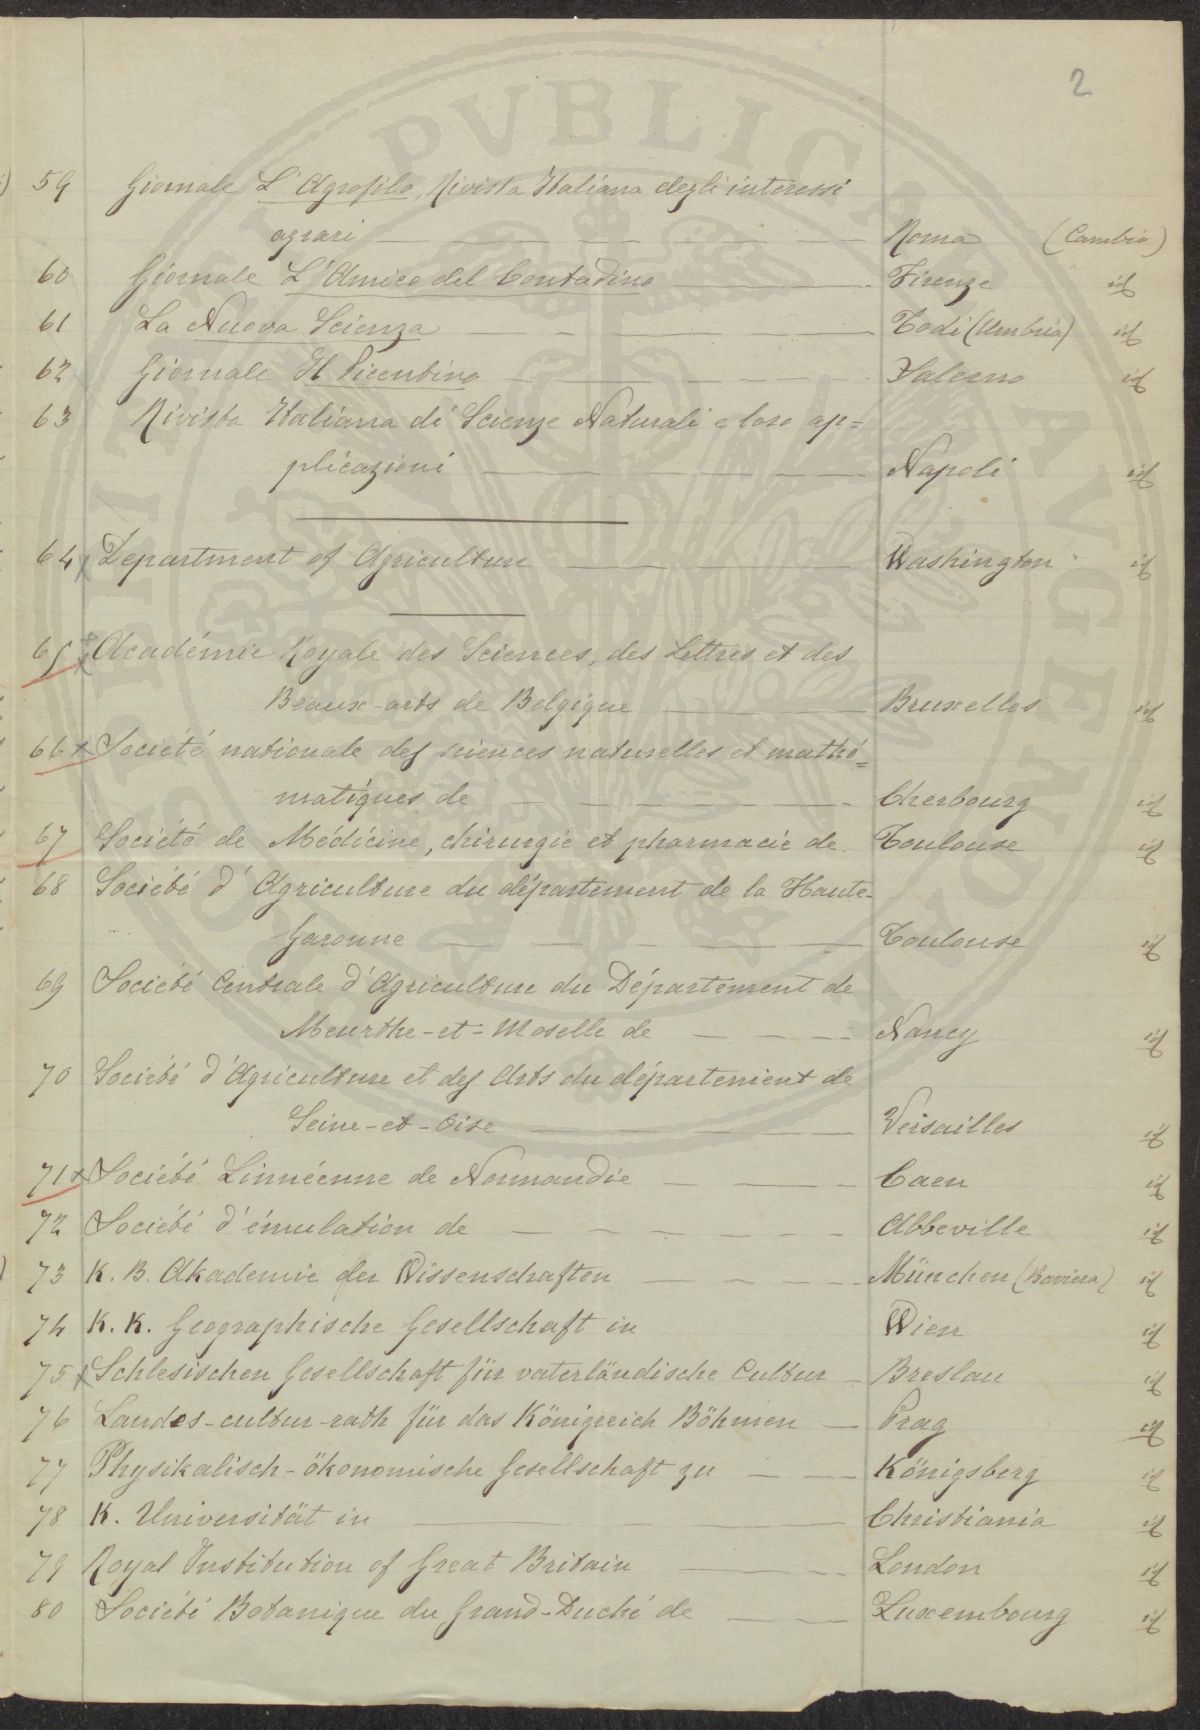 2
59 Giornale L'Agrofilo, Rivista Italiana degli interessi
agrari — Roma (Cambio)
60 Giornale L'Amico del Contadino — Firenze id
61 La Nuova Scienza — Todi (Umbria) id
62 Giornale Il Picentino — Salerno id
63 Rivista Italiana di Scienze Naturali e loro ap=
plicazioni — Napoli id
64 x Department of Agriculture — Washington id
65 x Académie Royale des Sciences, des Lettres et des
Beaux-arts de Belgique — Bruxelles id
66 x Societé nationale des sciences naturelles et mathé=
matiques de — Cherbourg id
67 Société de Médicine, chirurgie et pharmacie de Toulouse id
68 Société d'Agriculture du département de la Haute-
Garonne — Toulouse id
69 Société Centrale d'Agriculture du Département de
Meurthe-et-Moselle de — Nancy id
70 Société d'Agriculture et des Arts du département de
Seine-et-Oise — Versailles id
71 x Société Linnéenne de Normandie — Caen id
72 Société d'émulation de — Abbeville id
73 K. B. Akademie der Wissenschaften — München (Baviera) id
74 K. K. Geographische Gesellschaft in Wien id
75 x Schlesischen Gesellschaft für vaterländische Cultur — Breslau id
76 Landes-cultur-rath für das Königreich Böhmen — Prag id
77 Physikalisch-ökonomische Gesellschaft zu — Königsberg id
78 K. Universität in — Christiania id
79 Royal Institution of Great Britain — London id
80 Société Botanique du Grand-Duché de — Luxembourg id